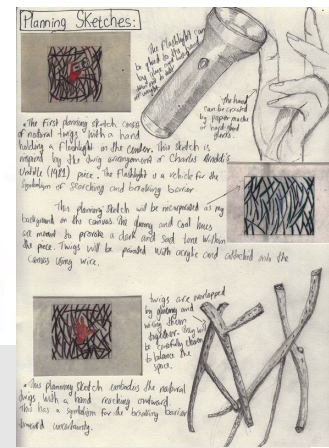 Planning Sketches:
The Flashlight can
be glued to the
the hand
can be created
by paper mache
or hard
gloves.
• The first planning sketch consists
of natural twigs with a hand
holding a flashlight in the center. This sketch is
inspired by the twig arrangement of Charles
Untitle (1981) piece. The flashlight is a vehicle for the
symbolism of searching and breaking barrier.
This planning sketch will be incorporated as my
background on the canvas. The gloomy and cool hues
are meant to provoke a dark and sad tone within
the piece. Twigs will be painted with acrylic and attached onto the
canvas using wire.
twigs are overlapped
by glueing and
wiring them
together. They will
be carefully chosen
to balance the
space.
• This planning sketch embodies the natural
twigs with a hand reaching outward.
This has a symbolism for the breaking barrier
toward uncertainty.